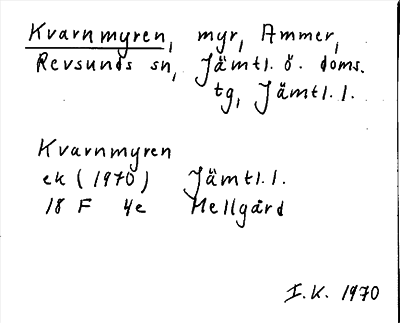 Kvarnmyren, myr, Ammer,
Revsunds sn, Jämtl. ö. doms.
tg, Jämtl. l.
Kvarnmyren
ek (1970) Jämtl. l.
18 F 4e Mellgård
I.K. 1970